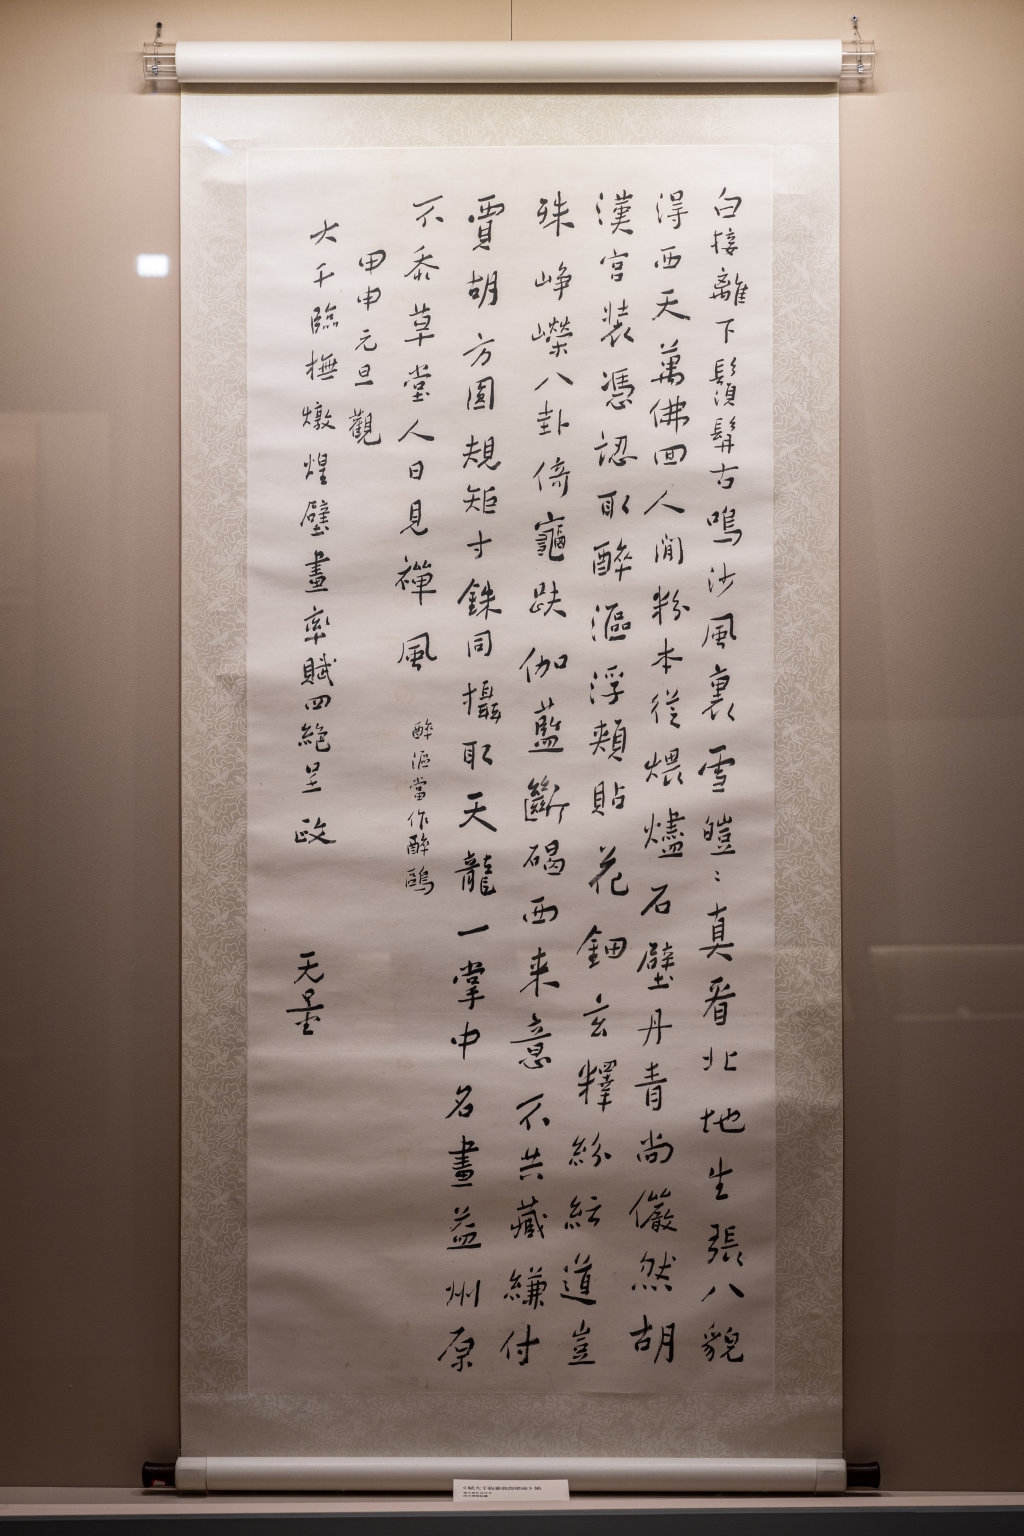 白接離下鬚髯古鳴沙風裏雪皚〻真看北地生張八貌
得西天萬佛回人間粉本從煨燼石壁丹青尚儼然胡
漢宮裝憑認取醉漚浮頰貼花鈿玄釋紛紜道豈
殊崢嶸八卦倚龜趺伽藍斷碣西来意不共藏縑付
賈胡方圓規矩寸銖同攝取天龍一掌中名畫益州原
不忝草堂人日見禪風
醉漚當作醉鷗
甲申元旦觀
大千臨撫燉煌壁畫率賦四絕呈政
无量